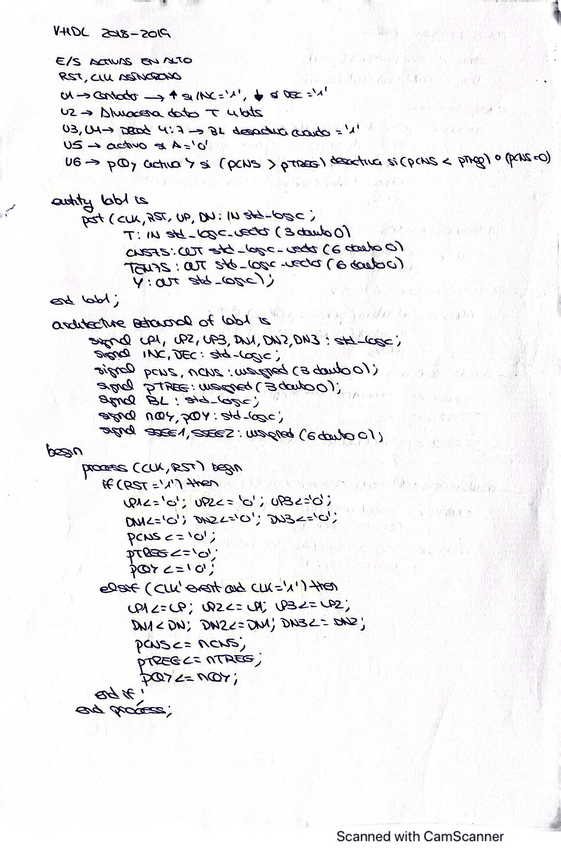 VHDL 2018-2019
E/S ACTIVAS EN ALTO
RST, CLK ASÍNCRONO
U1 → Contador → ↑ si INC='1', ↓ si DEC='1'
U2 → Almacena dato T 4 bits
U3, U4 → Decod 4:7 → BL desactiva cuando ='1'
U5 → activo si A='0'
U6 → pQY activa Y si (pCNS > pTREG) desactiva si (pCNS < pTREG) o (pCNS=0)
entity lab1 is
port (CLK, RST, UP, DN: IN std_logic;
T: IN std_logic_vector (3 downto 0)
CNS7S: OUT std_logic_vector (6 downto 0)
TEM7S: OUT std_logic_vector (6 downto 0)
Y: OUT std_logic);
end lab1;
architecture Behavioral of lab1 is
signal UP1, UP2, UP3, DN1, DN2, DN3: std_logic;
signal INC, DEC: std_logic;
signal pCNS, nCNS: unsigned (3 downto 0);
signal pTREG: unsigned (3 downto 0);
signal BL: std_logic;
signal nQY, pQY: std_logic;
signal SSEG1, SSEG2: unsigned (6 downto 0);
begin
process (CLK, RST) begin
if (RST='1') then
UP1<='0'; UP2<='0'; UP3<='0';
DN1<='0'; DN2<='0'; DN3<='0';
pCNS<='0';
pTREG<='0';
pQY<='0';
elsif (CLK'event and CLK='1') then
UP1<=UP; UP2<=UP1; UP3<=UP2;
DN1<DN; DN2<=DN1; DN3<=DN2;
pCNS<=nCNS;
pTREG<=nTREG;
pQY<=nQY;
end if;
end process;
Scanned with CamScanner